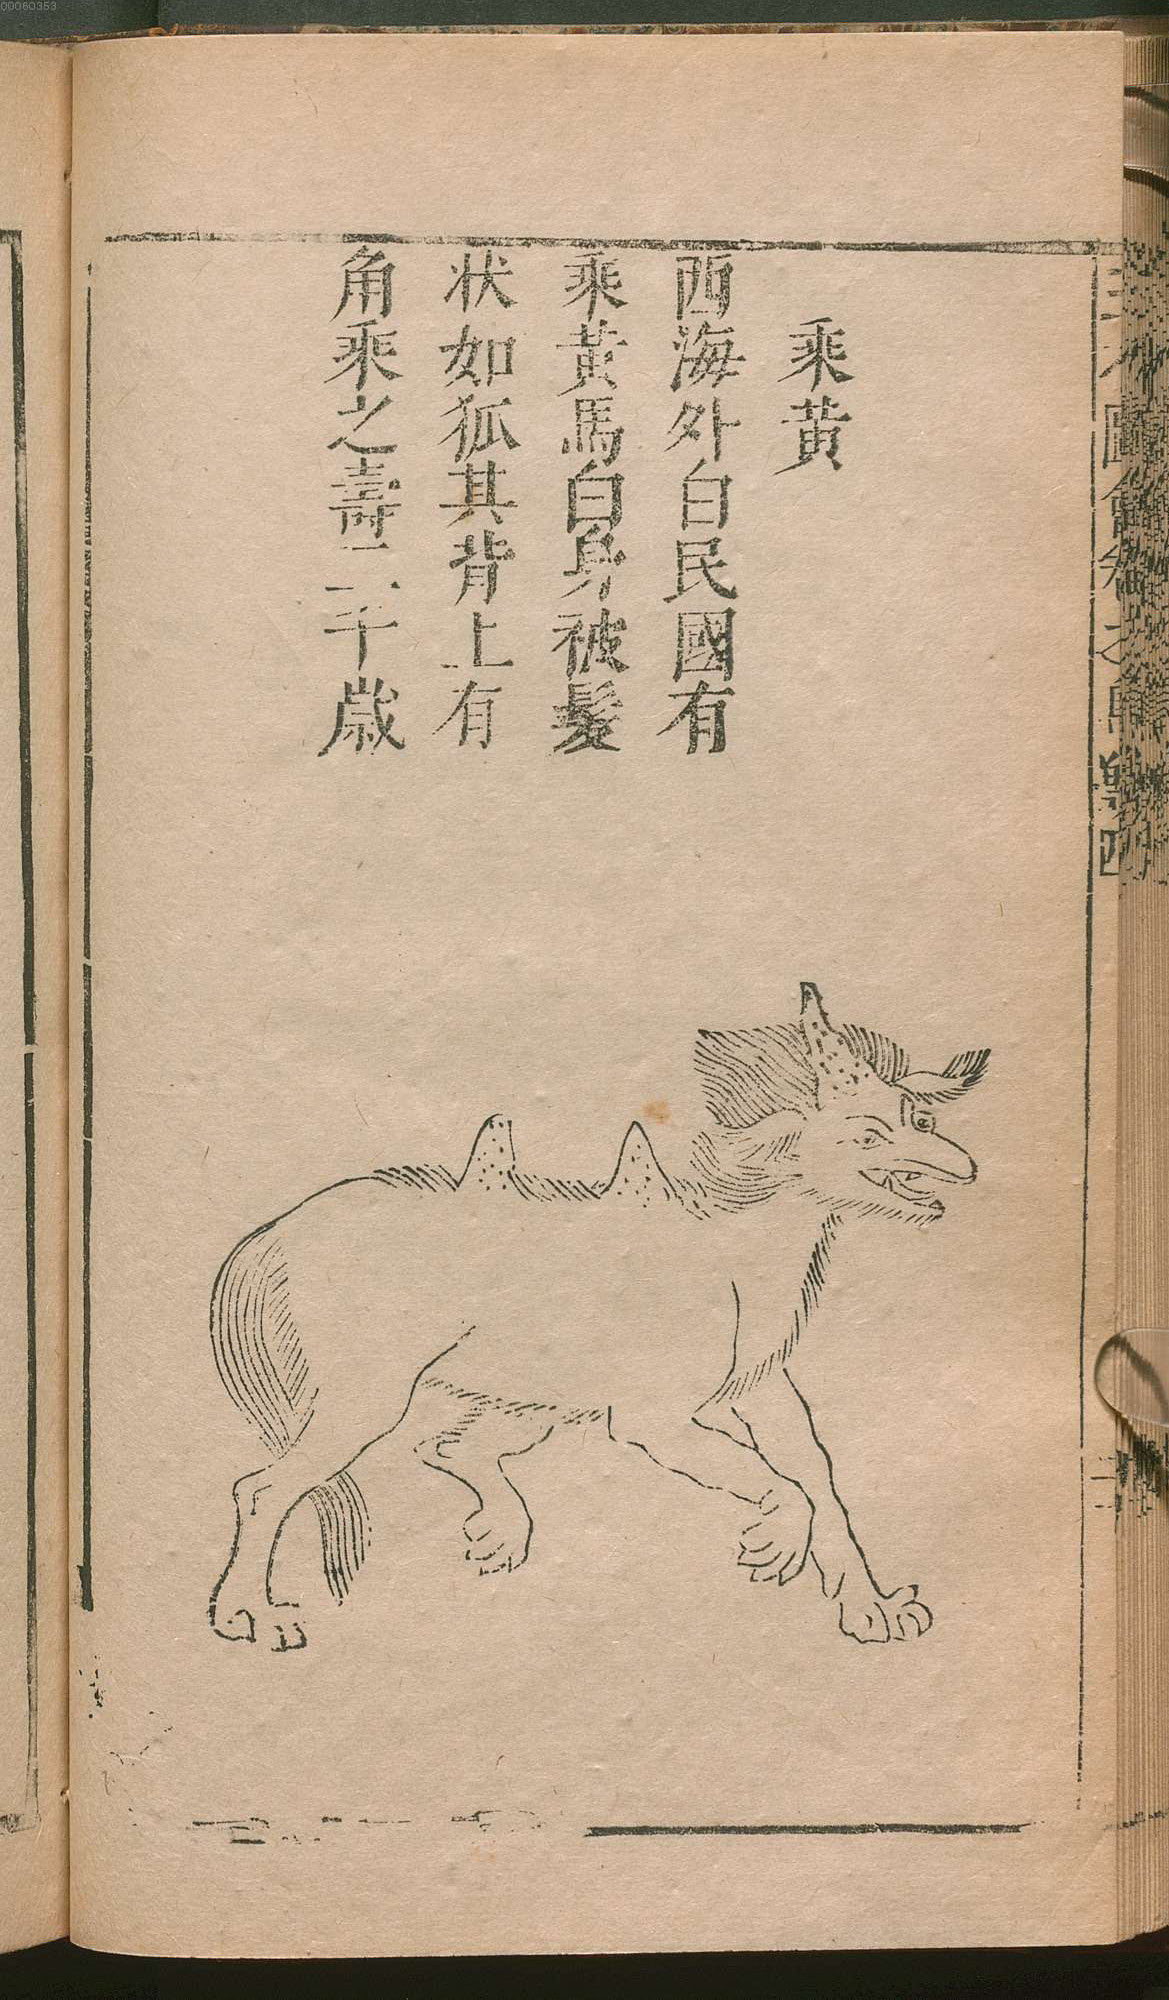 乘黃
西海外白民國有
乘黃馬白身被髮
狀如狐其背上有
角乘之壽二千歲
00060353